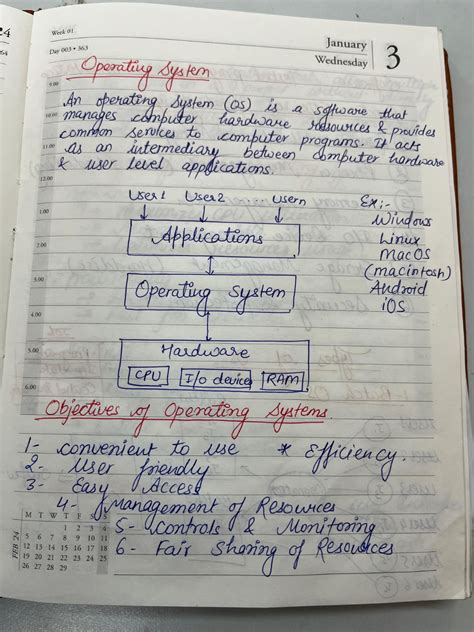 24
64
Week 01
Day 003 • 363
January
Wednesday
3
Operating System
9.00
An operating System (OS) is a software that
10.00
manages computer hardware resources & provides
common services to computer programs. It acts
11.00
as an intermediary between computer hardware
& user level applications.
12.00
User1 User2 ..... Usern
Ex;-
1.00
Windows
Applications
Linux
2.00
MacOS
(macintosh)
3.00
Operating System
Android
iOS
4.00
5.00
Hardware
CPU I/o devices RAM
6.00
Objectives of Operating Systems
1- convenient to use * Efficiency.
2- User friendly
3- Easy Access
4- Management of Resources
5- Controls & Monitoring
6- Fair Sharing of Resources
FEB '24
M T W T F S S
1 2 3 4
5 6 7 8 9 10 11
12 13 14 15 16 17 18
19 20 21 22 23 24 25
26 27 28 29